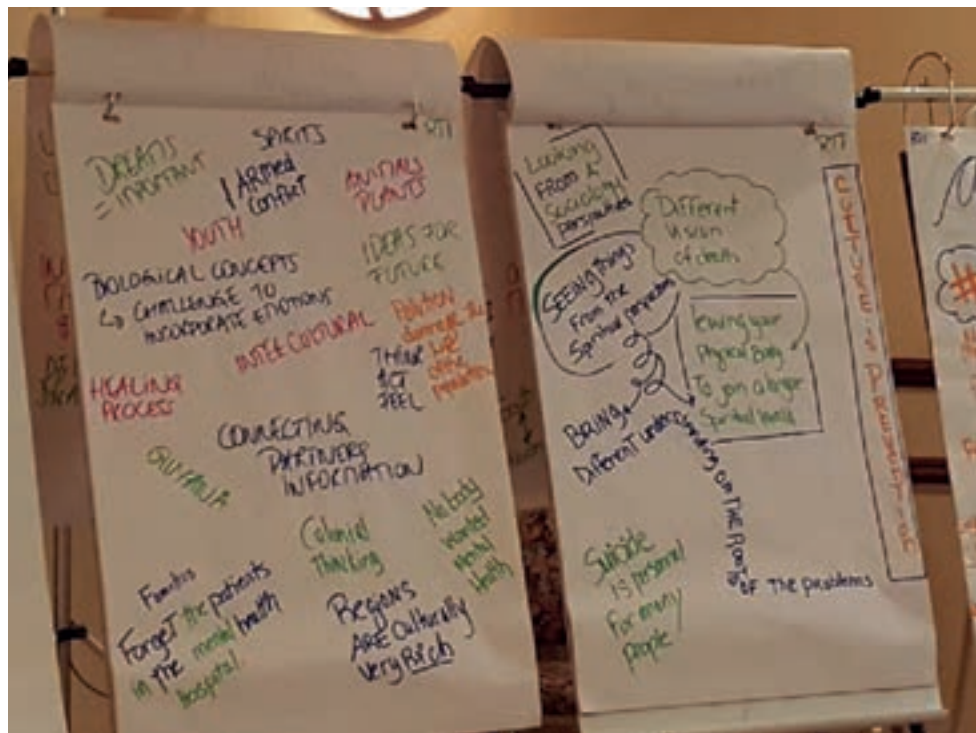 RTI
DREAMS
= IMPORTANT
SPIRITS
ARMED
CONFLICT
ANIMALS
PLANTS
YOUTH
IDEAS FOR
FUTURE
BIOLOGICAL CONCEPTS
↳ CHALLENGE TO
INCORPORATE EMOTIONS
INTERCULTURAL
THINK
ACT
FEEL
HEALING
PROCESS
CONNECTING
PARTNERS
INFORMATION
GUYANA
Colonial
Thinking
Nobody
wanted
Mental
Health
Families
Forget the patients
in the mental health
hospital.
REGIONS
ARE culturally
very Rich
RTI
Looking
From A
Sociology
perspective
Different
Vision
of death
SEEING things
From the
Spiritual perspective
leaving your
Physical Body
To join a larger
Spiritual World
BRING
Different understanding on THE ROOTS
OF THE problems
Suicide
Is personal
For many
people